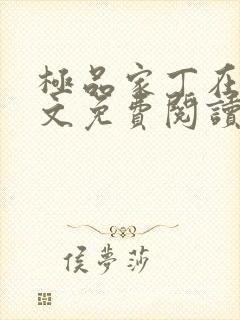 極品家丁在
文免費閱讀
侯夢莎